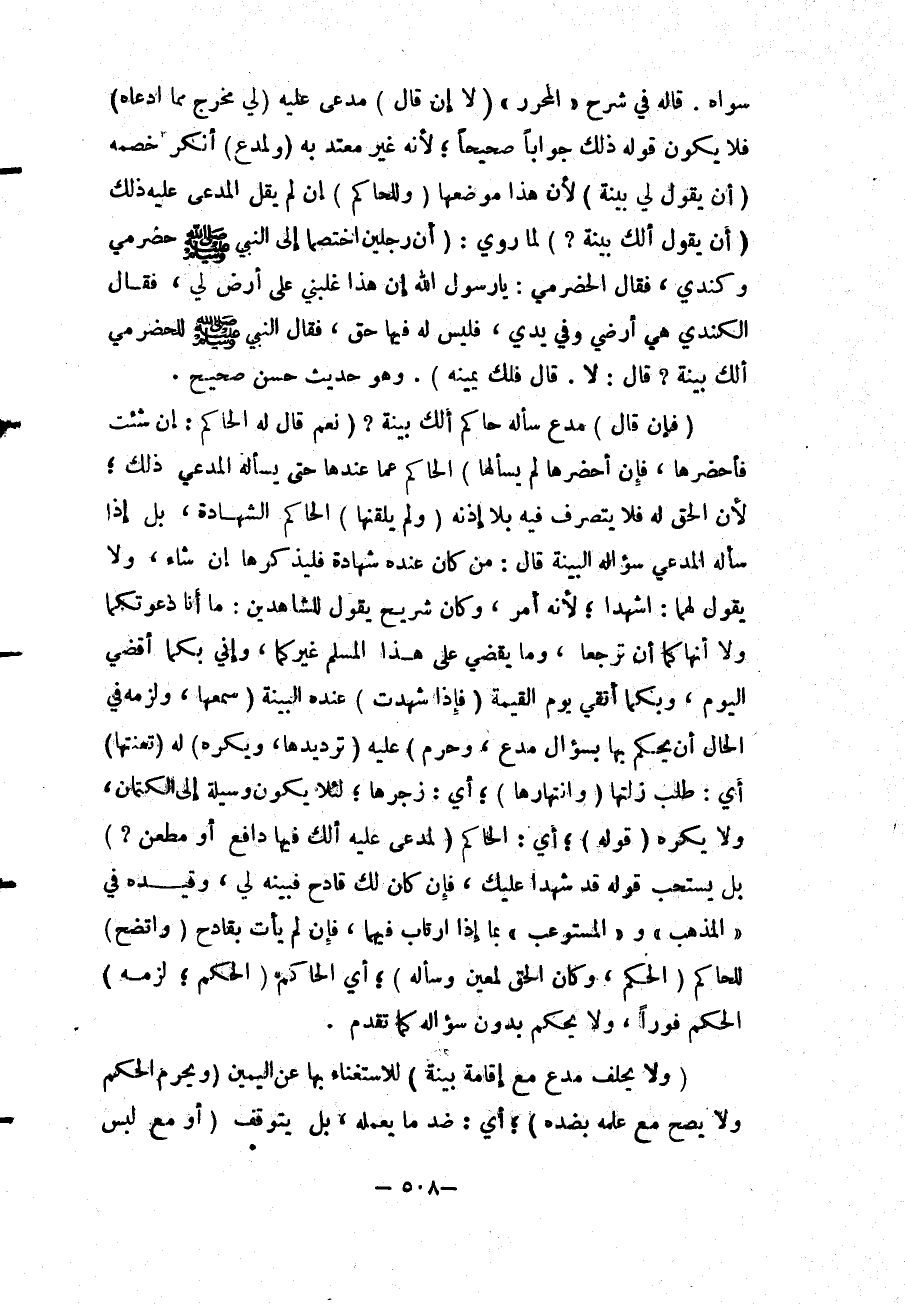 سواه . قاله في شرح « المحرر » ( لا إن قال ) مدعى عليه (لي مخرج مما ادعاه)
فلا يكون قوله ذلك جواباً صحيحاً ؛ لأنه غير معتد به (ولمدع) أنكر خصمه
( أن يقول لي بينة ) لأن هذا موضعها ( وللحاكم ) إن لم يقل المدعى عليه ذلك
( أن يقول ألك بينة ? ) لما روي : ( أن رجلين اختصما إلى النبي ﷺ حضرمي
وكندي ، فقال الحضرمي : يارسول الله إن هذا غلبني على أرض لي ، فقـال
الكندي هي أرضي وفي يدي ، فليس له فيها حق ، فقال النبي ﷺ للحضرمي
ألك بينة ? قال : لا . قال فلك يمينه ) . وهو حديث حسن صحيح .
( فإن قال ) مدع سأله حاكم ألك بينة ? ( نعم قال له الحاكم : إن شئت
فأحضرها ، فإن أحضرها لم يسألها ) الحاكم عما عندها حتى يسأله المدعي ذلك ؛
لأن الحق له فلا يتصرف فيه بلا إذنه ( ولم يلقنها ) الحاكم الشهـادة ، بل إذا
سأله المدعي سؤاله البينة قال : من كان عنده شهادة فليذكرها إن شاء ، ولا
يقول لهما : اشهدا ؛ لأنه أمر ، وكان شريح يقول للشاهدين : ما أنا دعوتكما
ولا أنهاكما أن ترجعا ، وما يقضي على هـذا المسلم غيركما ، وإني بكما أقضي
اليوم ، وبكما أتقي يوم القيمة ( فإذا شهدت ) عنده البينة ( سمعها ، ولزمه في
الحال أن يحكم بها بسؤال مدع ، وحرم ) عليه ( ترديدها، ويكره) له (تعنتها)
أي : طلب زلتها ( وانتهارها ) ؛ أي : زجرها ؛ لئلا يكون وسيلة إلى الكتمان ،
ولا يكره ( قوله ) ؛ أي : الحاكم ( لمدعى عليه ألك فيها دافع أو مطعن ? )
بل يستحب قوله قد شهدا عليك ، فإن كان لك قادح فبينه لي ، وقيـــده في
« المذهب » و « المستوعب » بما إذا ارتاب فيها ، فإن لم يأت بقادح ( واتضح)
للحاكم ( الحكم ، وكان الحق لمعين وسأله ) ؛ أي الحاكم ( الحكم ؛ لزمـه )
الحكم فوراً ، ولا يحكم بدون سؤاله كما تقدم .
( ولا يحلف مدع مع إقامة بينة ) للاستغناء بها عن اليمين (ويحرم الحكم
ولا يصح مع علمه بضده ) ؛ أي : ضد ما يعمله ، بل يتوقف ( أو مع لبس
– ٥٠٨ –